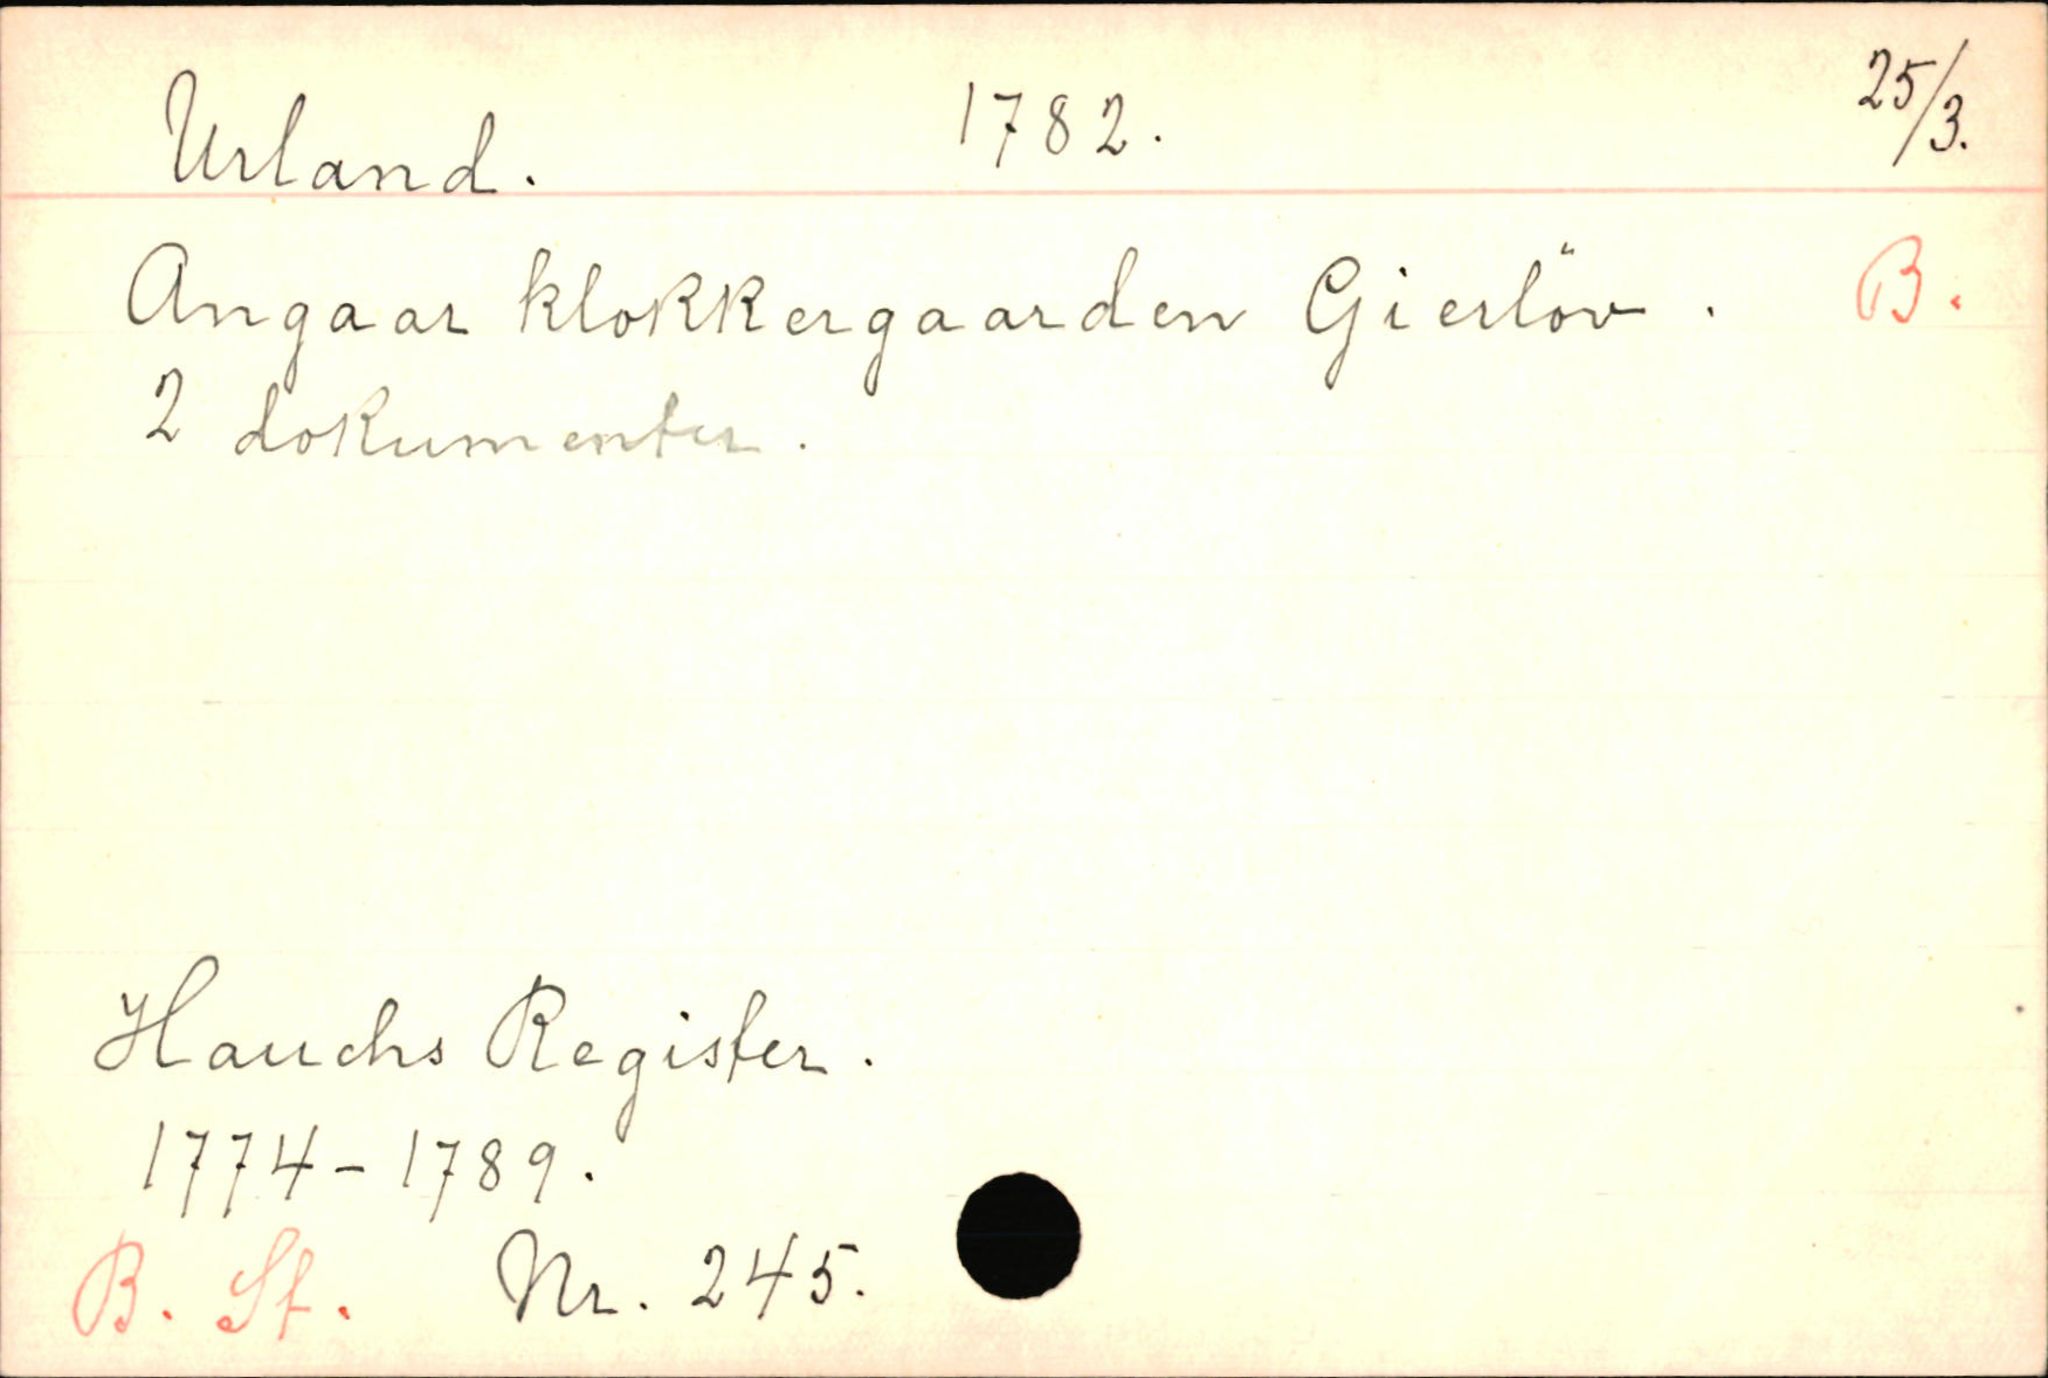 Urland. 1782. 25/3.
Angaar klokkergaarden Gierlöv. B.
2 dokumenter.
Hauchs Register.
1774-1789.
B. St. Nr. 245.